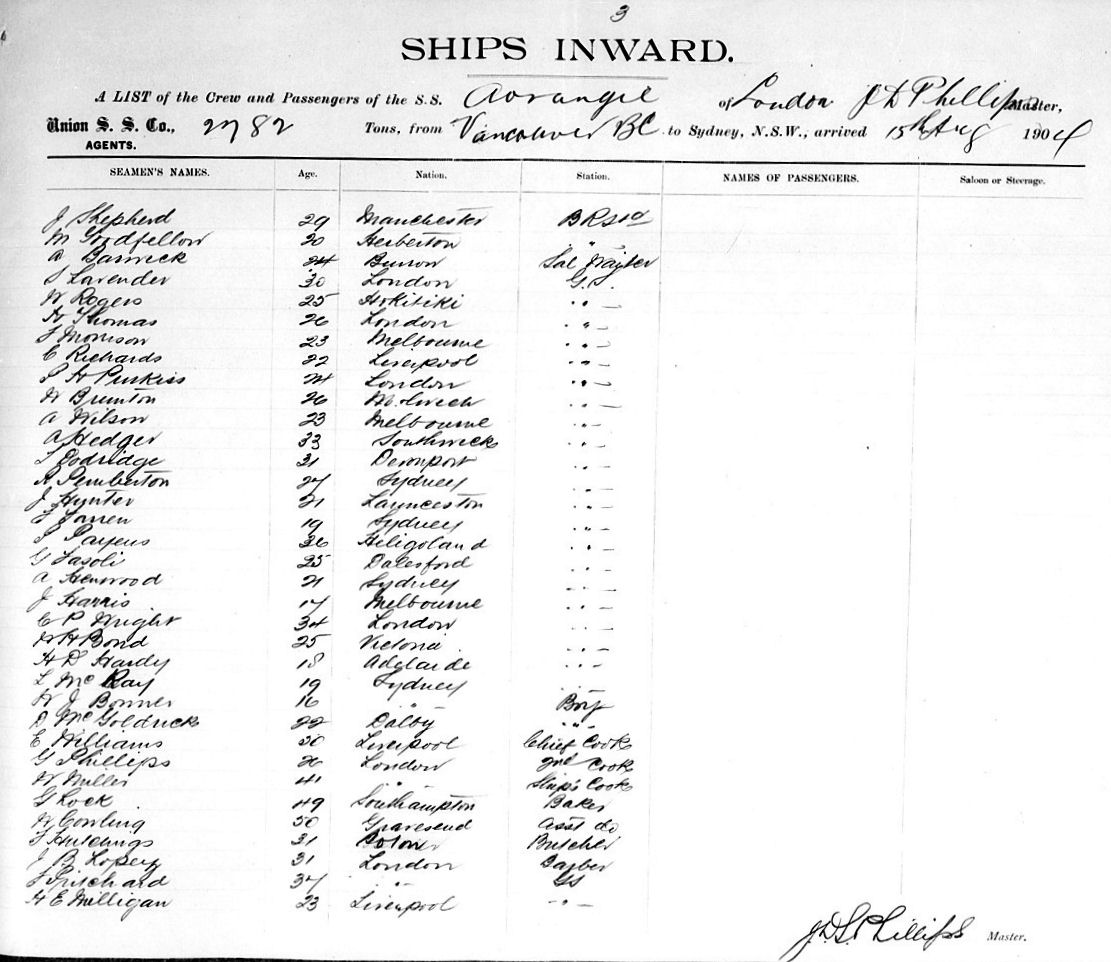 3
SHIPS INWARD.
A LIST of the Crew and Passengers of the S.S. Aorangie of London J D Phillips Master,
Union S. S. Co., 2782 Tons, from Vancouver BC to Sydney, N.S.W., arrived 15th Aug 1904
AGENTS.
SEAMEN'S NAMES. Age. Nation. Station. NAMES OF PASSENGERS. Saloon or Steerage.
J Shepherd 29 Manchester
M Goodfellow 20 Herberton "
A Barwick 24 Sal Waiter
S Lavender 30 London G.S.
W Rogers 25 Hokitiki "
H Thomas 26 London "
J Morrison 23 Melbourne "
C Richards 22 Liverpool "
S H Purkiss 24 London "
W Brunton 26 "
A Wilson 23 Melbourne "
A Hedger 33 Southwick "
Dodridge 31 Devonport "
A Pemberton 27 Sydney "
J Hunter 21 Launceston "
19 Sydney "
36 Heligoland "
G Fasoli 25 Dalesford "
A Henwood 21 Sydney "
J Harris 17 Melbourne "
C P Wright 34 London "
W H Bond 25 Victoria "
H D Hardy 18 Adelaide "
L McRay 19 Sydney
W J Bonner 16 " Boy
D McGoldrick 22 Dalby "
E Williams 30 Liverpool Chief Cook
G Phillips 26 London 2nd Cook
W Miller 41 " Ship's Cook
G Lock 49 Southampton Baker
W Cowling 50 Gravesend Asst do
Hutchings 31 Butcher
J B Lopez 31 London Barber
Pritchard 37 " GS
H E Milligan 23 Liverpool "
J D S Phillips Master.